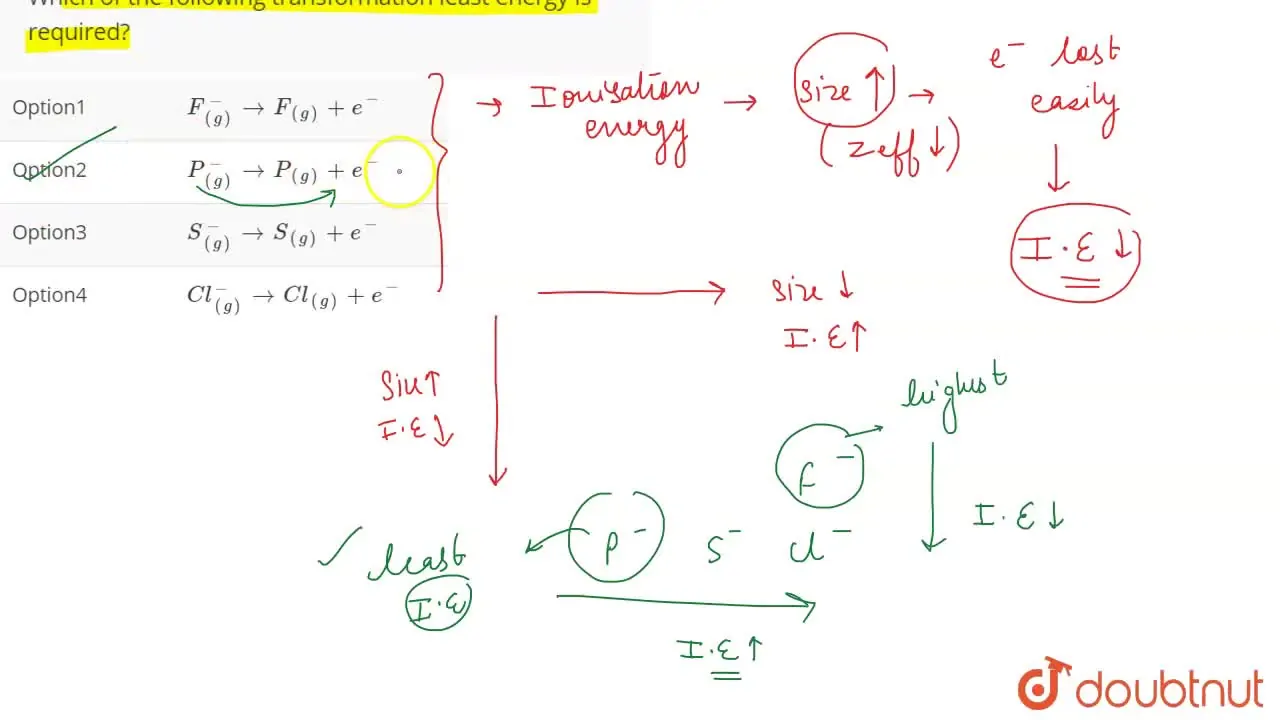 Which of the following transformation least energy is
required?
Option1 F⁻(g) → F(g) + e⁻
Option2 P⁻(g) → P(g) + e⁻
Option3 S⁻(g) → S(g) + e⁻
Option4 Cl⁻(g) → Cl(g) + e⁻
→ Ionisation energy → size ↑ → e⁻ lost easily
(Zeff ↓)
I.E ↓
size ↓
I.E ↑
Size ↑
I.E ↓
highest
F⁻
I.E ↓
P⁻ S⁻ Cl⁻
✓ least
I.E
I.E ↑
doubtnut